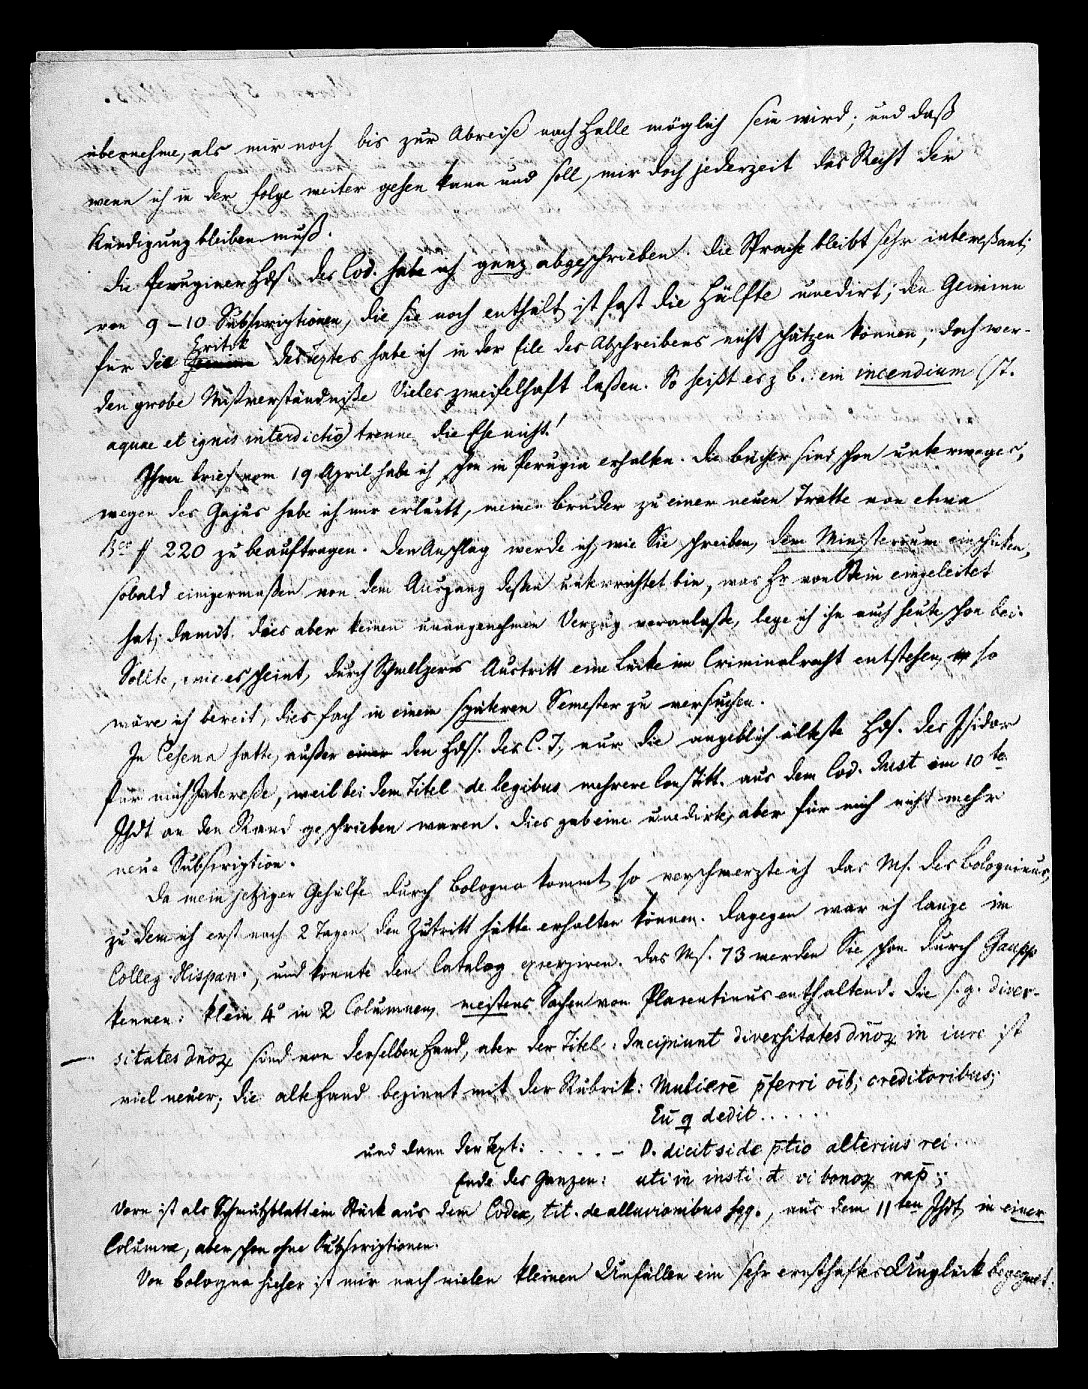 übernehme, als mir noch bis zur Abreise nach Halle möglich sein wird; und daß
wenn ich in der Folge weiter gehen kann und soll, mir doch jederzeit das Recht der
Kündigung bleiben muß.
Die Peruginer Hds. des Cod. habe ich ganz abgeschrieben. Die Sprache bleibt sehr intereßant;
von 9–10 Subscriptionen, die sie noch enthält, ist fast die Hälfte unedirt; den Gewinn
für die Kritik des Textes habe ich in der Eile des Abschreibens nicht schätzen können; doch wer-
den grobe Mißverständniße Vieles zweifelhaft laßen. So heißt es z b. ein incendium (st.
aquae et ignis interdictio) trenne die Ehe nicht!
Ihren Brief vom 19 April habe ich schon in Perugia erhalten. Die Bücher sind schon unterweges,
wegen des Gajus habe ich mir erlaubt, meinen Bruder zu einer neuen Tratte von etwa
220 zu beauftragen. Den Anschlag werde ich, wie Sie schreiben, dem Ministerium einschicken,
sobald einigermaßen von dem Ausgang deßen unterrichtet bin, was Hr von Stein eingeleitet
hat; damit dies aber keinen unangenehmen Verzug veranlaße, lege ich ihn auch heute schon bei.
Sollte, wie es scheint, durch Schmelzers Austritt eine Lücke im Criminalrecht entstehen, so
wäre ich bereit, dies Fach in einem späteren Semester zu versuchen.
In Cesena hatte, außer den Hdss. des C. J., nur die angeblich älteste Hds. des Isidor
für mich Intereße, weil bei dem Titel de legibus mehrere Constitt. aus dem Cod. Just im 10 te
Jhdt an den Rand geschrieben waren. Dies gab eine unedirte, aber für mich nicht mehr
neue Subscription.
Da mein jetziger Gehülfe durch Bologna kommt, so verschmerzte ich das Ms. des Bologninus,
zu dem ich erst nach 2 Tagen den Zutritt hätte erhalten können. Dagegen war ich lange im
Colleg. Hispan., und konnte den Catalog excerpiren. Das Ms. 73 werden Sie schon durch Gaupp
kennen: klein 4° in 2 Columnen, meistens Sachen von Placentinus enthaltend. Die s. g. diver-
sitates dnoꝝ sind von derselben Hand, aber der Titel: Incipiunt diversitates dnoꝝ in iure ist
viel neuer; die alte Hand beginnt mit der Rubrik: Mulierē p̄ferri oīb; creditoribus;
Eū q dedit ......
und dann der Text: ..... – D. dicit side ptio alterius rei
Ende des Ganzen: uti in insti. t̄ vi bonoꝝ rap̄;
Vorn ist als Schmutzblatt ein Stück aus dem Codex, tit. de alluvionibus sqq., aus dem 11ten Jhdt, in einer
Columne, aber schon ohne Subscriptionen.
Von Bologna hieher ist mir nach vielen kleinen Unfällen ein sehr ernsthaftes Unglück begegnet: